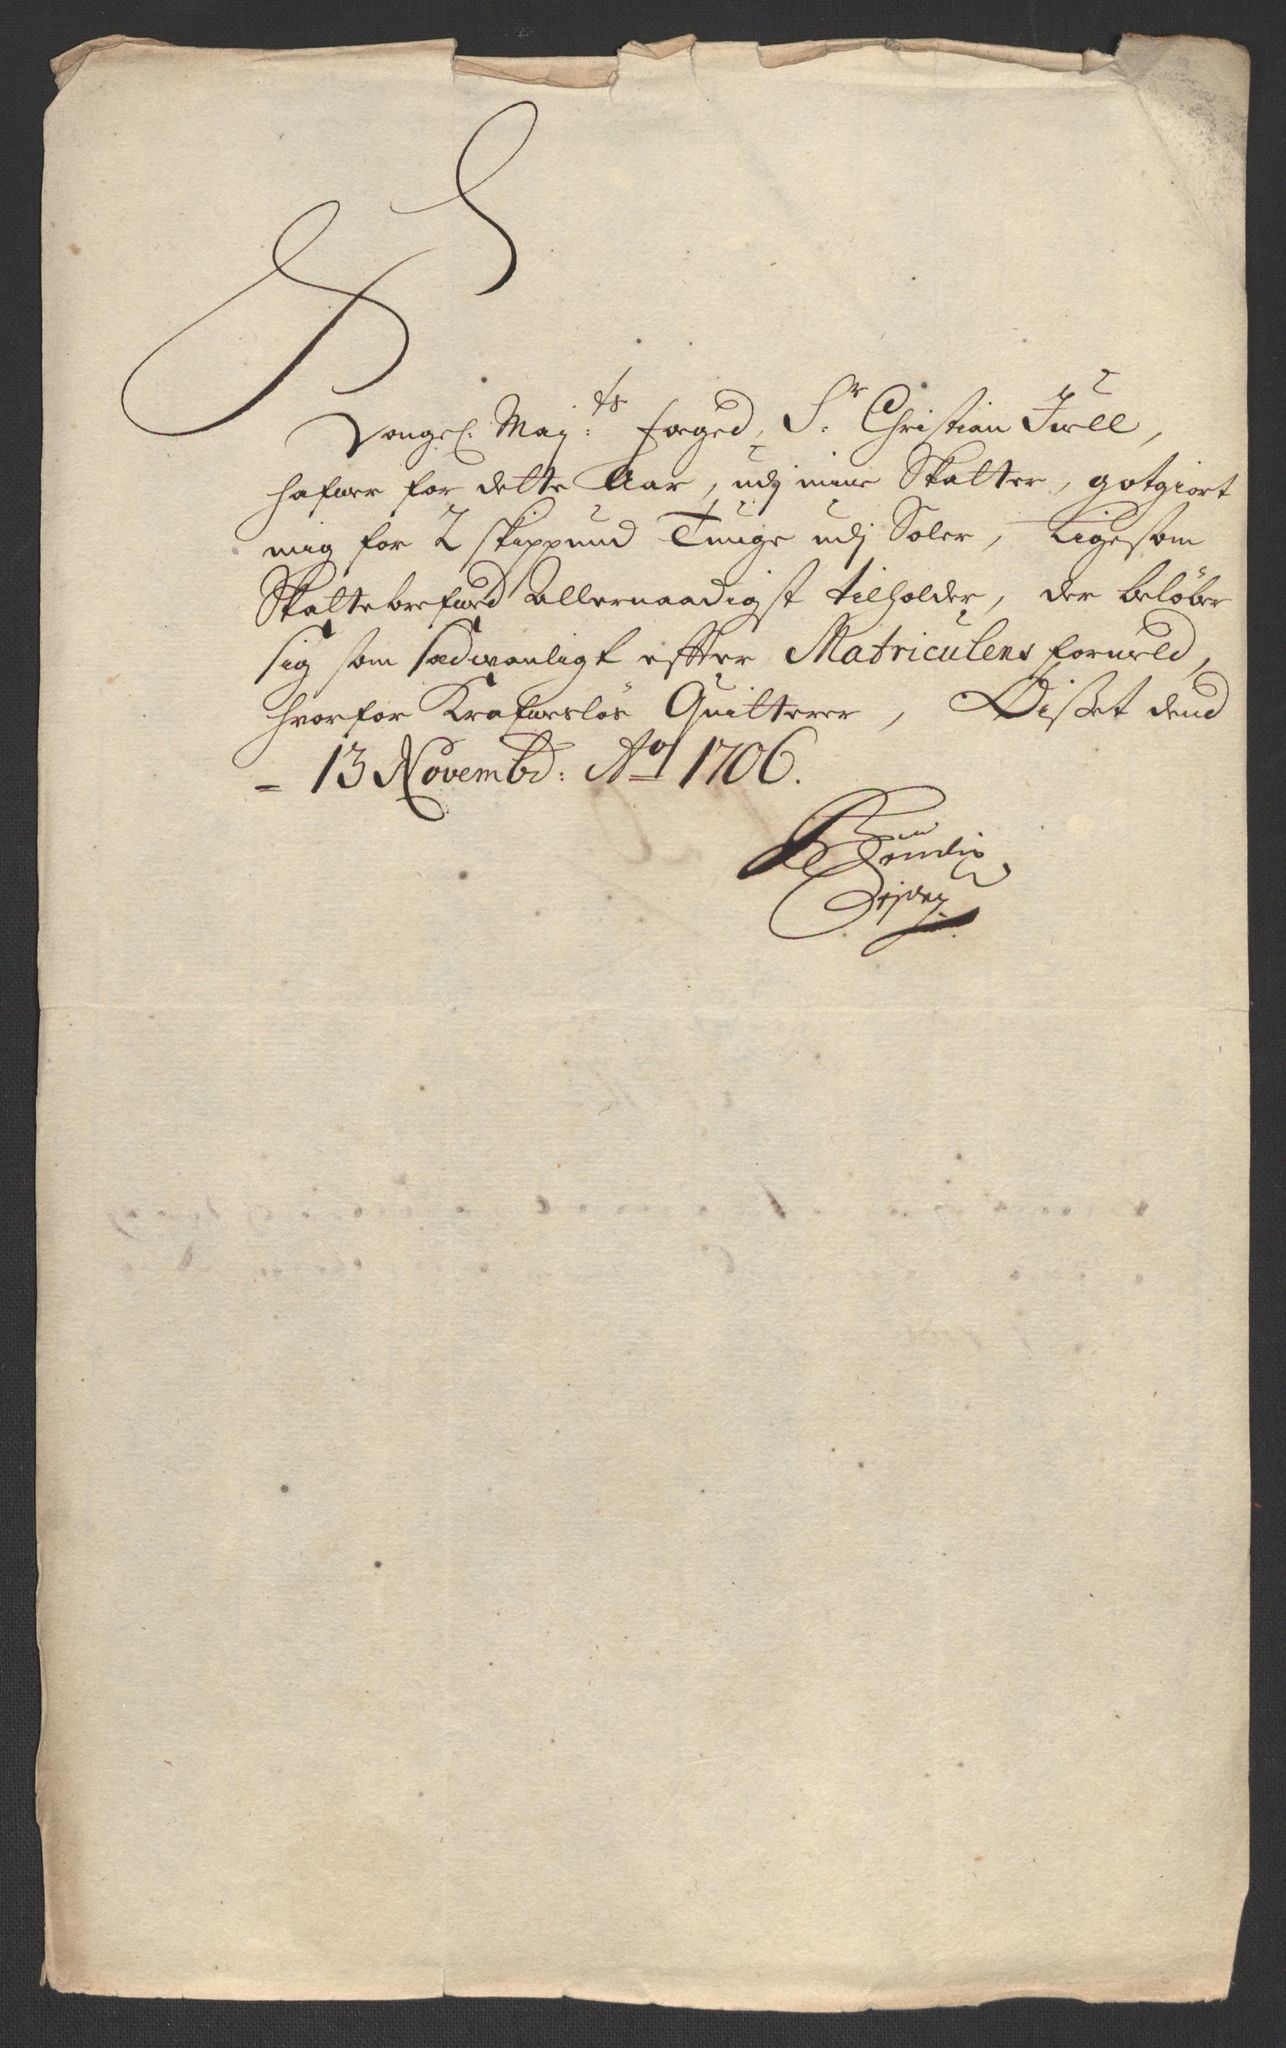 Kongel. Maj:ts foged, Sr. Christian Juell,
hafuer for dette Aar, udj mine Skatter, gotgiort
mig for 2 skippund Tunge udj Soler, Ligesom
Skattebrefued Allernaadigst tilholder, der belöber
sig som sædwanligt efter Matriculens formeld,
hvorfor Krafweslös Quitterer, Disset dend
= 13 Novembr: Ao 1706.